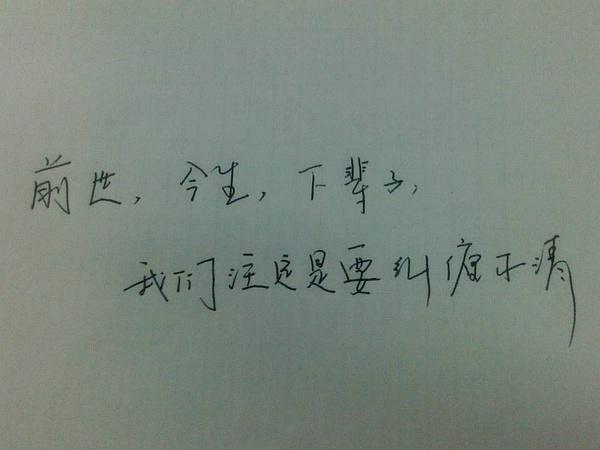 前世，今生，下辈子，
我们注定是要纠缠不清